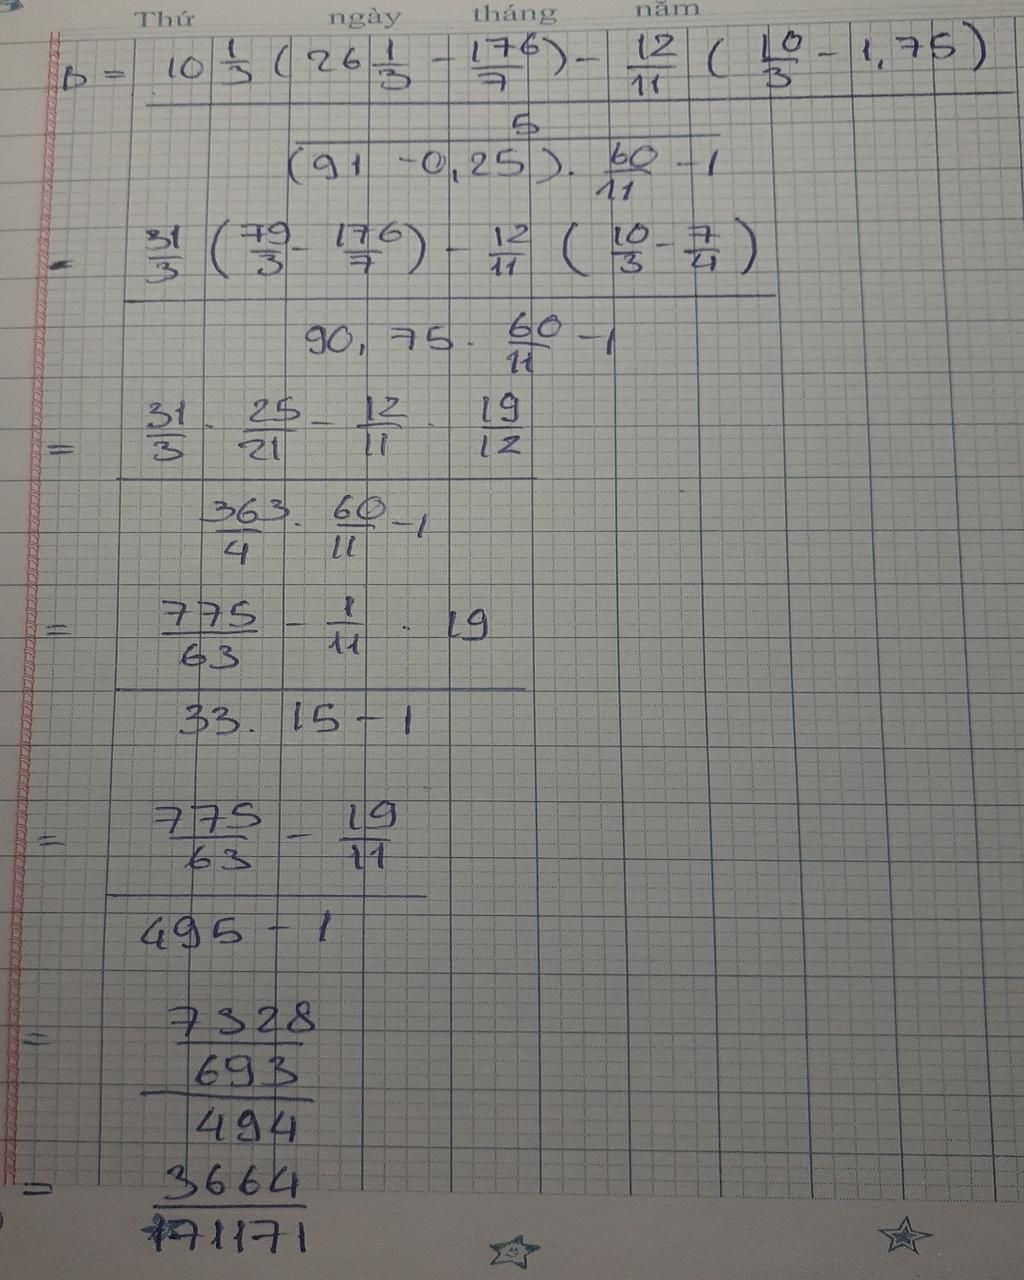 Thứ ngày tháng năm
B = 10 1/3 ( 26 1/3 - 176/7 ) - 12/11 ( 10/3 - 1,75 )
5
(91 - 0,25 ) . 60/11 - 1
= 31/3 ( 79/3 - 176/7 ) - 12/11 ( 10/3 - 7/4 )
90,75 . 60/11 - 1
= 31/3 . 25/21 - 12/11 . 19/12
363/4 . 60/11 - 1
= 775/63 - 1/11 . 19
33 . 15 - 1
= 775/63 - 19/11
495 - 1
= 7328
693
494
= 3664
171171